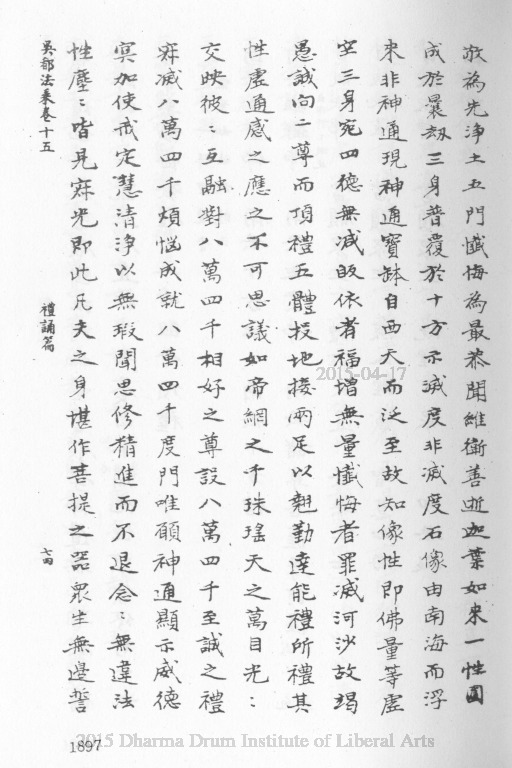 敬為先淨土五門懺悔為最恭聞維衛善逝迦葉如來一性圓
成於曩劫三身普覆於十方示滅度非滅度石像由南海而浮
來非神通現神通寶缽自西天而泛至故知像性即佛量等虛
空三身宛四德無減皈依者福增無量懺悔者罪滅河沙故竭
愚誠向二尊而頂禮五體投地接兩足以翹勤達能禮所禮其
性虛通感之應之不可思議如帝網之千珠瑤天之萬目光〻
交映彼〻互融對八萬四千相好之尊設八萬四千至誠之禮
寂滅八萬四千煩惱成就八萬四千度門唯願神通顯示威德
冥加使戒定慧清淨以無瑕聞思修精進而不退念〻無違法
性塵〻皆見寂光即此凡夫之身堪作菩提之器眾生無邊誓
吳都法乘卷十五
禮誦篇
七四
2015-04-17
1897
2015 Dharma Drum Institute of Liberal Arts